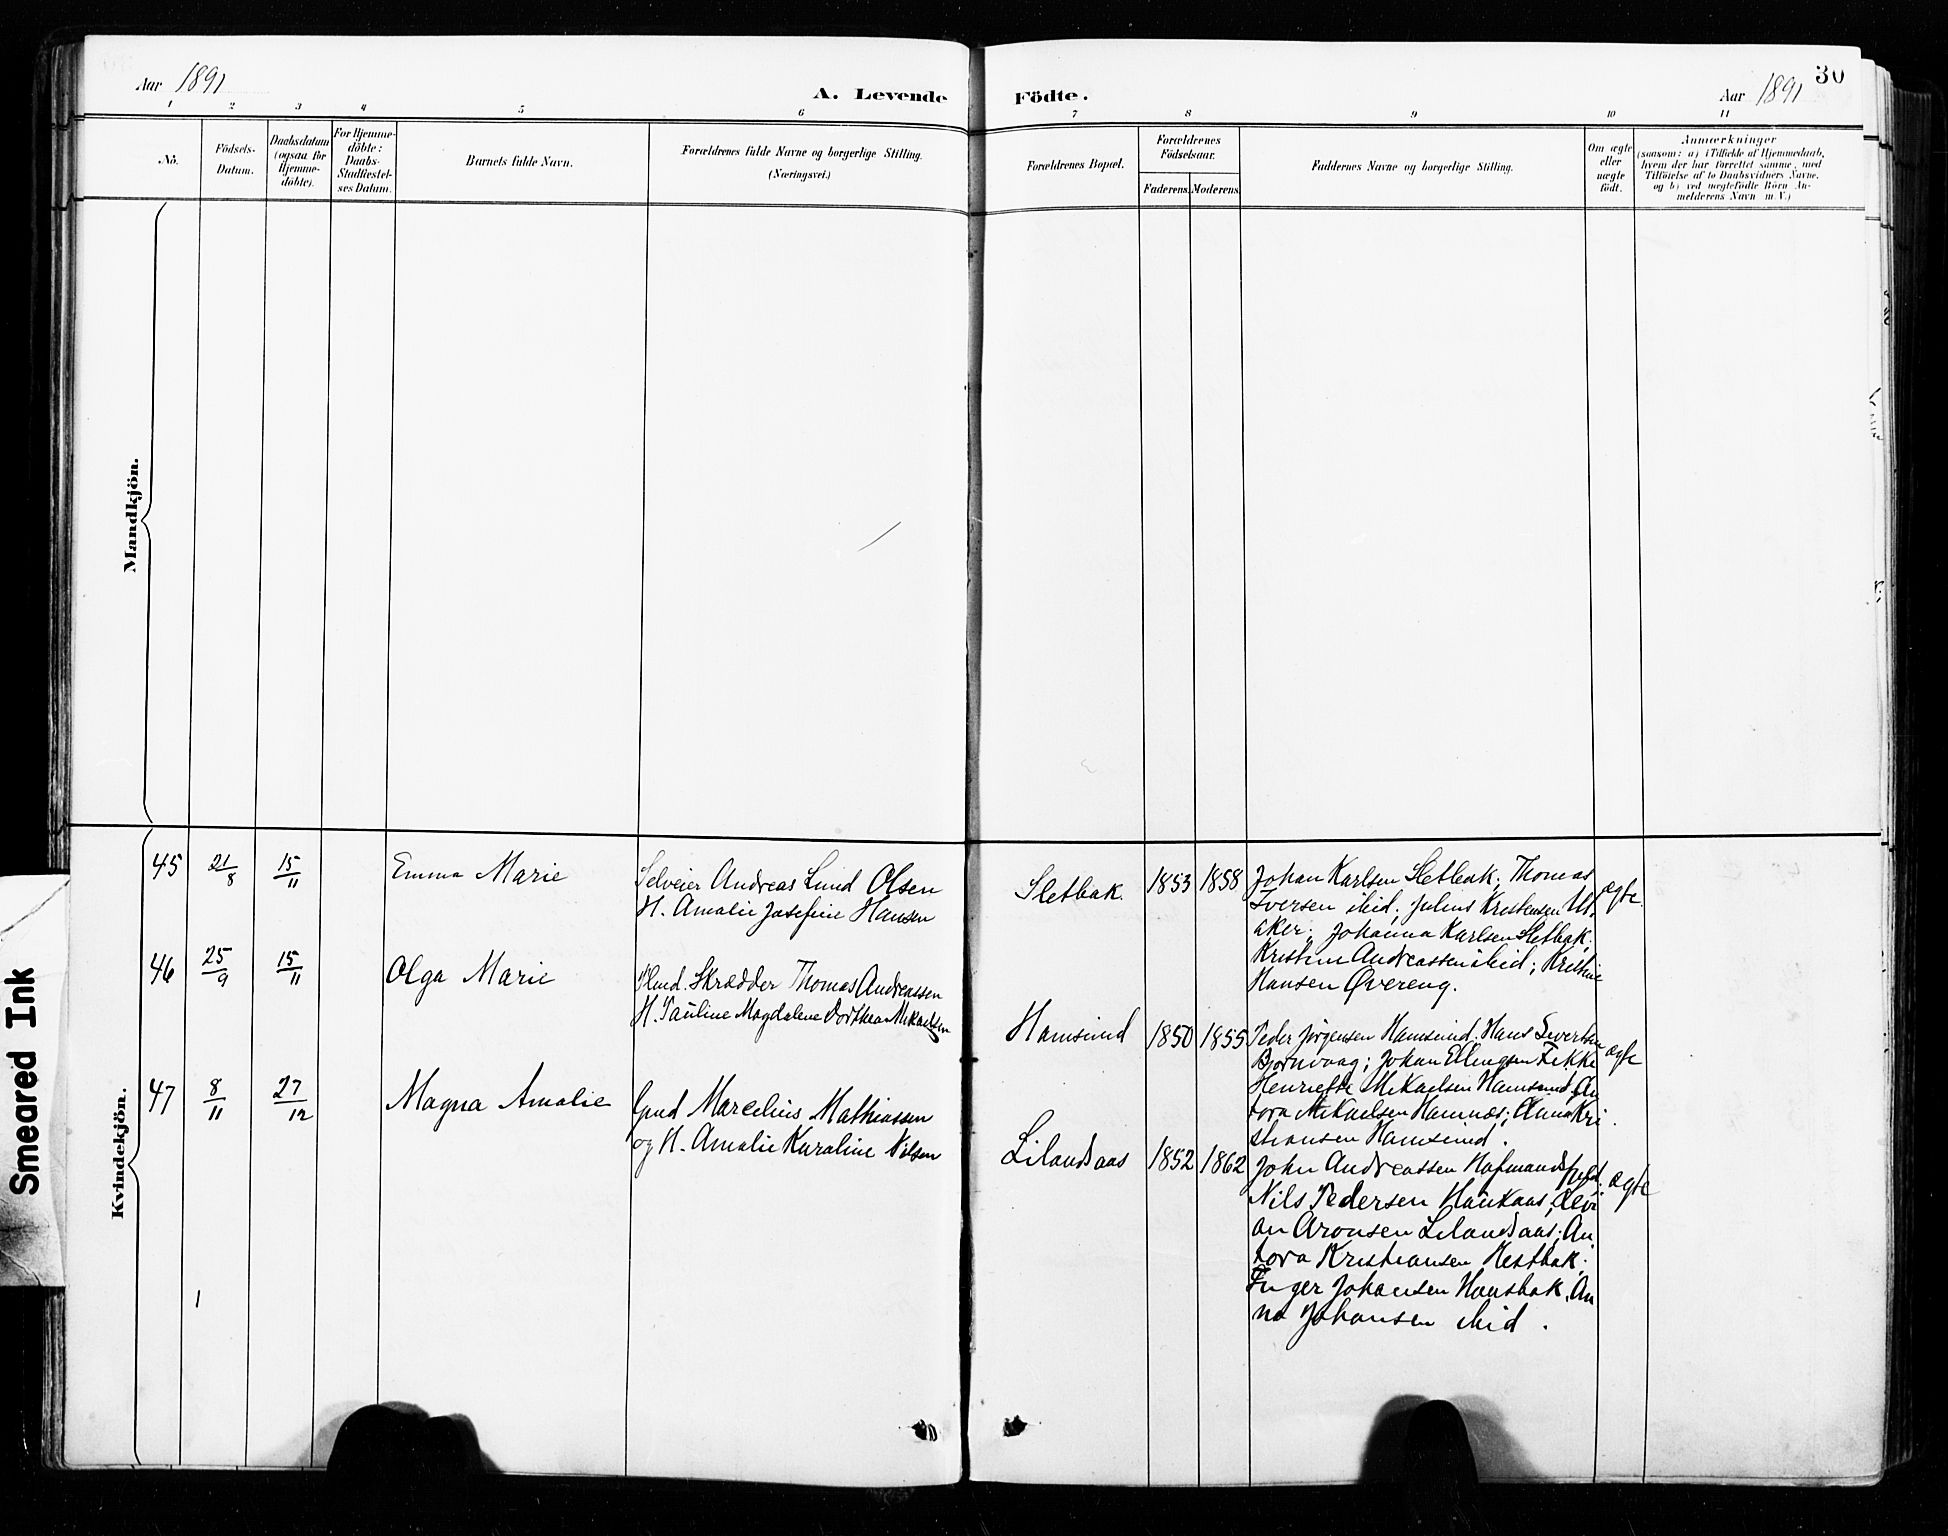 Aar 1891
A. Levende Födte.
Aar 1891
30
1 2 3 4 5 6 7 8 9 10 11
No.
Födsels-Datum.
Daabsdatum (ogsaa for Hjemmedöbte).
For Hjemmedöbte: Daabs-Stadfæstelses Datum.
Barnets fulde Navn.
Forældrenes fulde Navne og borgerlige Stilling.
(Næringsvei.)
Forældrenes Bopæl.
Forældrenes Födselsaar.
Faderens. Moderens.
Faddernes Navne og borgerlige Stilling.
Om ægte eller uægte födt.
Anmærkninger
(saasom: a) i Tilfælde af Hjemmedaab,
hvem der har forrettet samme, med
Tilföielse af to Daabsvidners Navne.
og b) ved uægtefödte Börn An-
melderens Navn m.V.)
Mandkjön.
Kvindekjön.
45 21/8 15/11 Emma Marie
Selveier Andreas Lund Olsen
H. Amalie Josefine Hansen
Sletbak. 1853 1858
Johan Karlsen Sletbak; Thomas
Iversen ibid; Julius Kristensen Ut-
aker; Johanna Karlsen Sletbak;
Kristine Andreassen ibid; Kristine
Hansen Øvereng.
ægte.
46 25/9 15/11 Olga Marie
Skrædder Thomas Andreassen
H. Pauline Magdalene Dorthea Mikaelsen
Hamsund 1850 1855
Peder Jørgensen Hamsund; Hans Sivertsen
Bjørnvaag; Johan Ellingsen
Henriette Mikaelsen Hamsund; An
tora Mikaelsen Hamnæs; Anna Kri
stiansen Hamsund.
ægte
47 8/11 27/12 Magna Amalie
Gmd Marcelius Mathiassen
og H. Amalie Karoline Nilsen
Lilandsaas 1852 1862
John Andreassen
Nils Pedersen Haukaas;
an Aronsen Lilandsaas; An
tora Kristiansen
Inger Johansen Hansbak, An
na Johansen ibid.
ægte
Smeared Ink